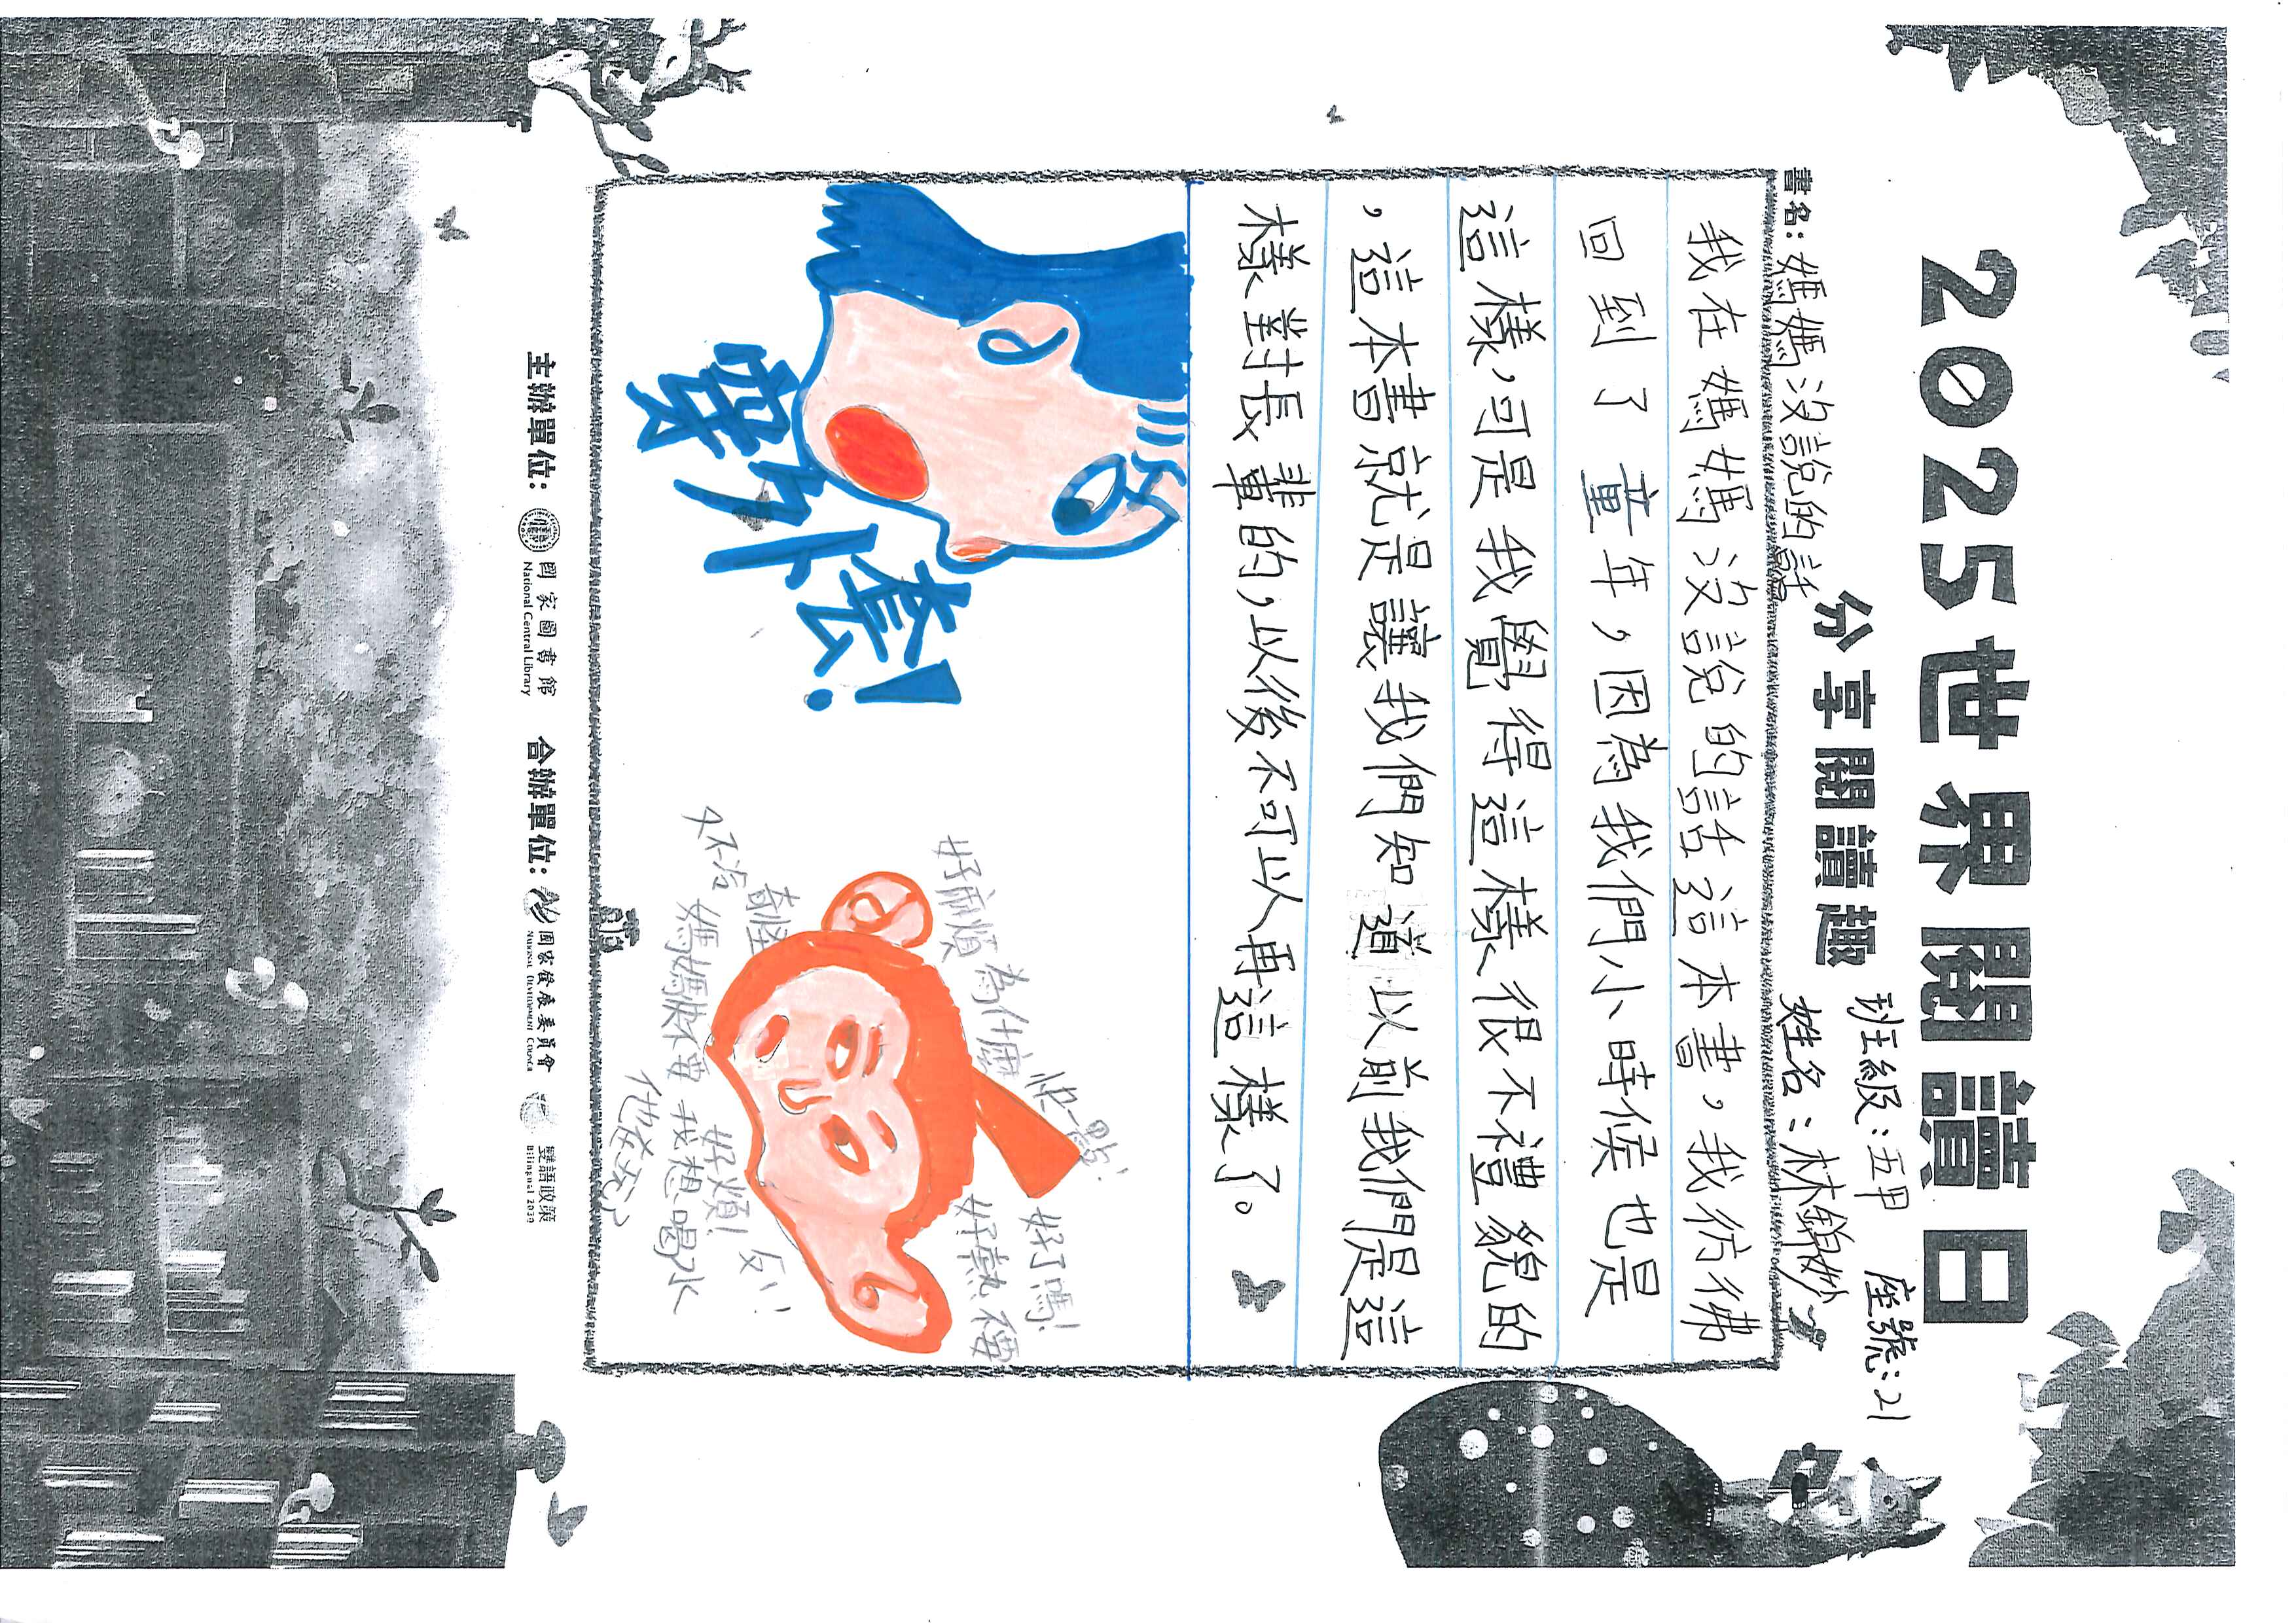 2025世界閱讀日
分享閱讀趣
班級：五甲 座號：21
姓名：林錦妙
書名：媽媽沒說的話
我在媽媽沒說的話這本書，我彷彿
回到了童年，因為我們小時候也是
這樣，可是我覺得這樣很不禮貌的
，這本書就是讓我們知道以前我們是這
樣對長輩的，以後不可以再這樣了。
穿外套！
好麻煩
為什麼
快一點！
好了嗎！
好熱
奇怪
才不冷
媽媽快來
好煩！
我想喝水
主辦單位：國家圖書館 National Central Library 合辦單位：國家發展委員會 National Development Council 雙語政策 Bilingual 2030